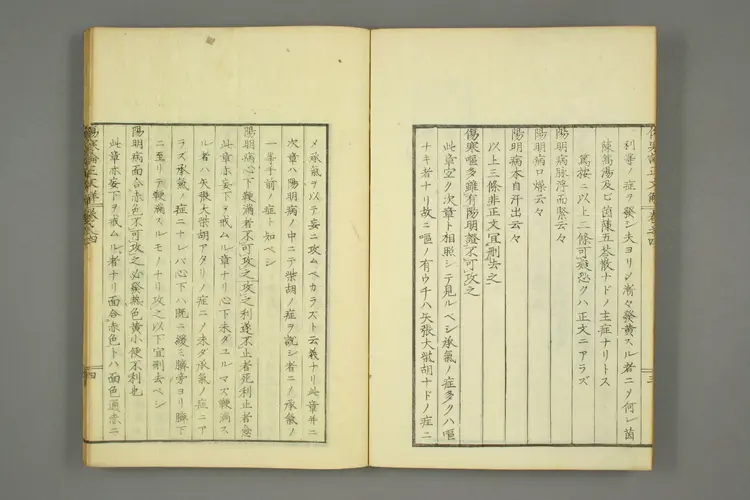 利等ノ症ヲ發シ夫ヨリシテ漸々發黄スル者ニメ何レ茵
陳蒿湯及ビ茵陳五苓散ナドノ主症ナリトス
篤按ニ以上二條可疑恐クハ正文ニアラズ
陽明病脉浮而緊云々
陽明病口燥云々
陽明病本自汗出云々
以上三條非正文宜刪去之
傷寒嘔多雖有陽明證不可攻之
此章宜ク次章ト相照シテ見ルベシ承氣ノ症多クハ嘔
ナキ者ナリ故ニ嘔ノ有ウチハ矢張大柴胡ナドノ症ニ
メ承氣ヲ以テ妄ニ攻ムベカラズト云義ナリ此章并ニ
次章ハ陽明病ノ中ニテ柴胡ノ症ヲ說シ者ニメ承氣ノ
一等手前ノ症ト知ベシ
陽明病心下鞕滿者不可攻之攻之利遂不止者死利止者愈
此章亦妄下ヲ戒ムル章ナリ心下未ダユルマズ鞕滿ス
ル者ハ矢張大柴胡アタリノ症ニメ未ダ承氣ノ症ニア
ラズ承氣ノ症ニナレバ心下ハ既ニ緩ミ臍旁ヨリ臍下
ニ至リテ鞕滿スルモノナリ攻之以下宜刪去ベシ
陽明病面合赤色不可攻之必發熱色黄小便不利也
此章亦妄下ヲ戒ムル者ナリ面合赤色トハ面色通赤ニ
傷寒論正文解 卷之四
四